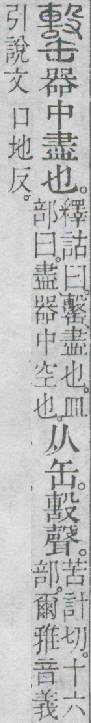 罊器中盡也。
釋詁曰。罊、盡也。皿
部曰。盡、器中空也。
从缶。毄聲。
苦計切。十六
部。爾雅音義
引說文 口地反。